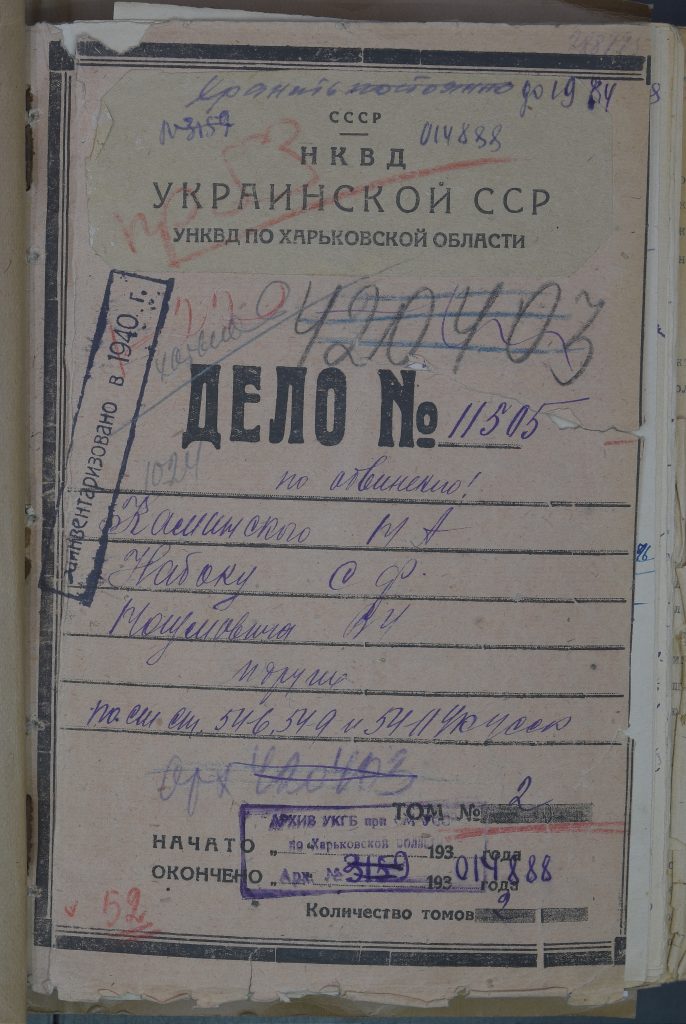 хранить постоянно до 1984
СССР
№3159
014888
НКВД
УКРАИНСКОЙ ССР
УНКВД ПО ХАРЬКОВСКОЙ ОБЛАСТИ
инвентаризовано в 1940 г.
420403
ДЕЛО № 11505
1024
по обвинению
Каминского М А
Набоку С Ф.
и други
по ст ст. 546, 549 и 5411 УК УССР
Арх 420403
ТОМ № 2
АРХИВ УКГБ при
по Харьковской области
НАЧАТО „ 193 года
Арх. № 3159 014888
ОКОНЧЕНО „ 193 года
Количество томов 2
52